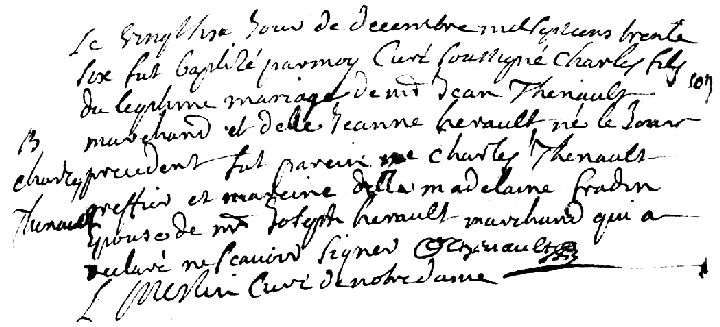 Le vingt six Jour de decembre mil sept cens trente
six fut baptizé par moy Curé soussigné Charles fils
du legitime mariage de mr Jean Thenault
marchand et de delle Jeanne herault né le Jour
B
Charles
Thenault
precedent fut parein me Charles Thenault
greffier et mareine delle madelaine fradin
epouse de mr Joseph herault marchand qui a
declaré ne scavoir signer C Thenault
Merlin Curé de notre dame